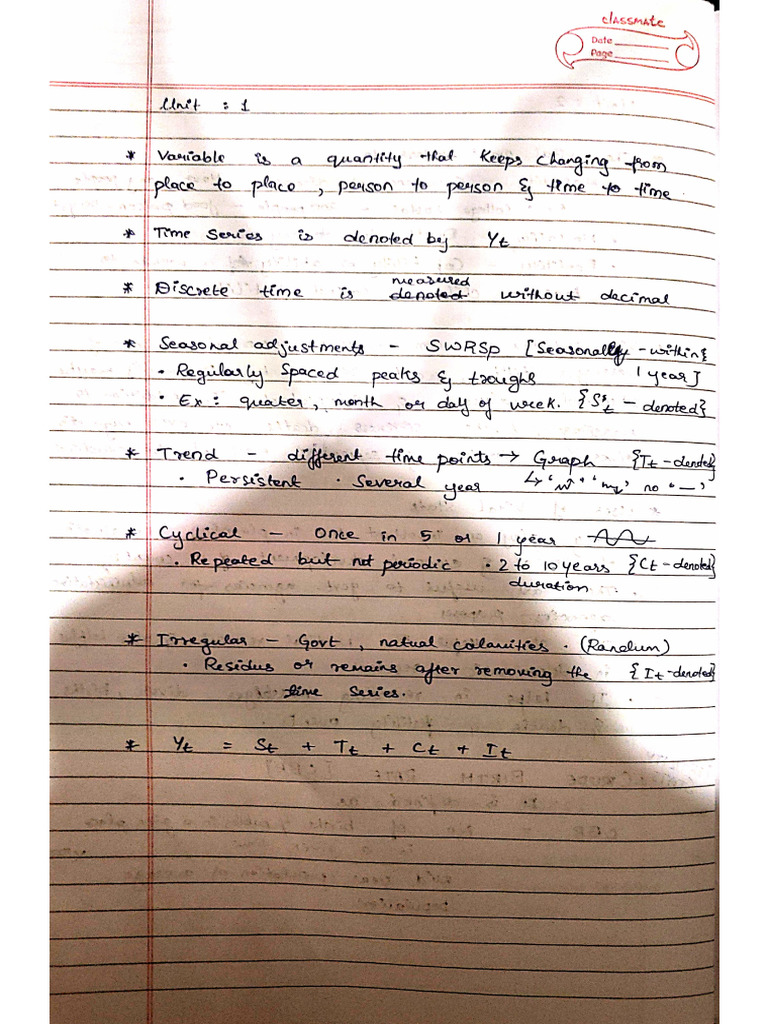 classmate
Date
Page
Unit : 1
* Variable is a quantity that keeps changing from
place to place, person to person & time to time
* Time series is denoted by Yt
measured
* Discrete time is denoted without decimal
* Seasonal adjustments - SWRSP [Seasonally - within
• Regularly Spaced peaks & troughs 1 year]
• Ex: quater, month or day of week. {St - denoted}
* Trend - different time points → Graph {Tt - denoted}
• Persistent • Several year no "—"
* Cyclical - Once in 5 or 1 year
• Repeated but not periodic • 2 to 10 years {Ct - denoted}
duration
* Irregular - Govt, natual calamities. (Random)
• Residus or remains after removing the {It - denoted}
time series.
* Yt = St + Tt + Ct + It